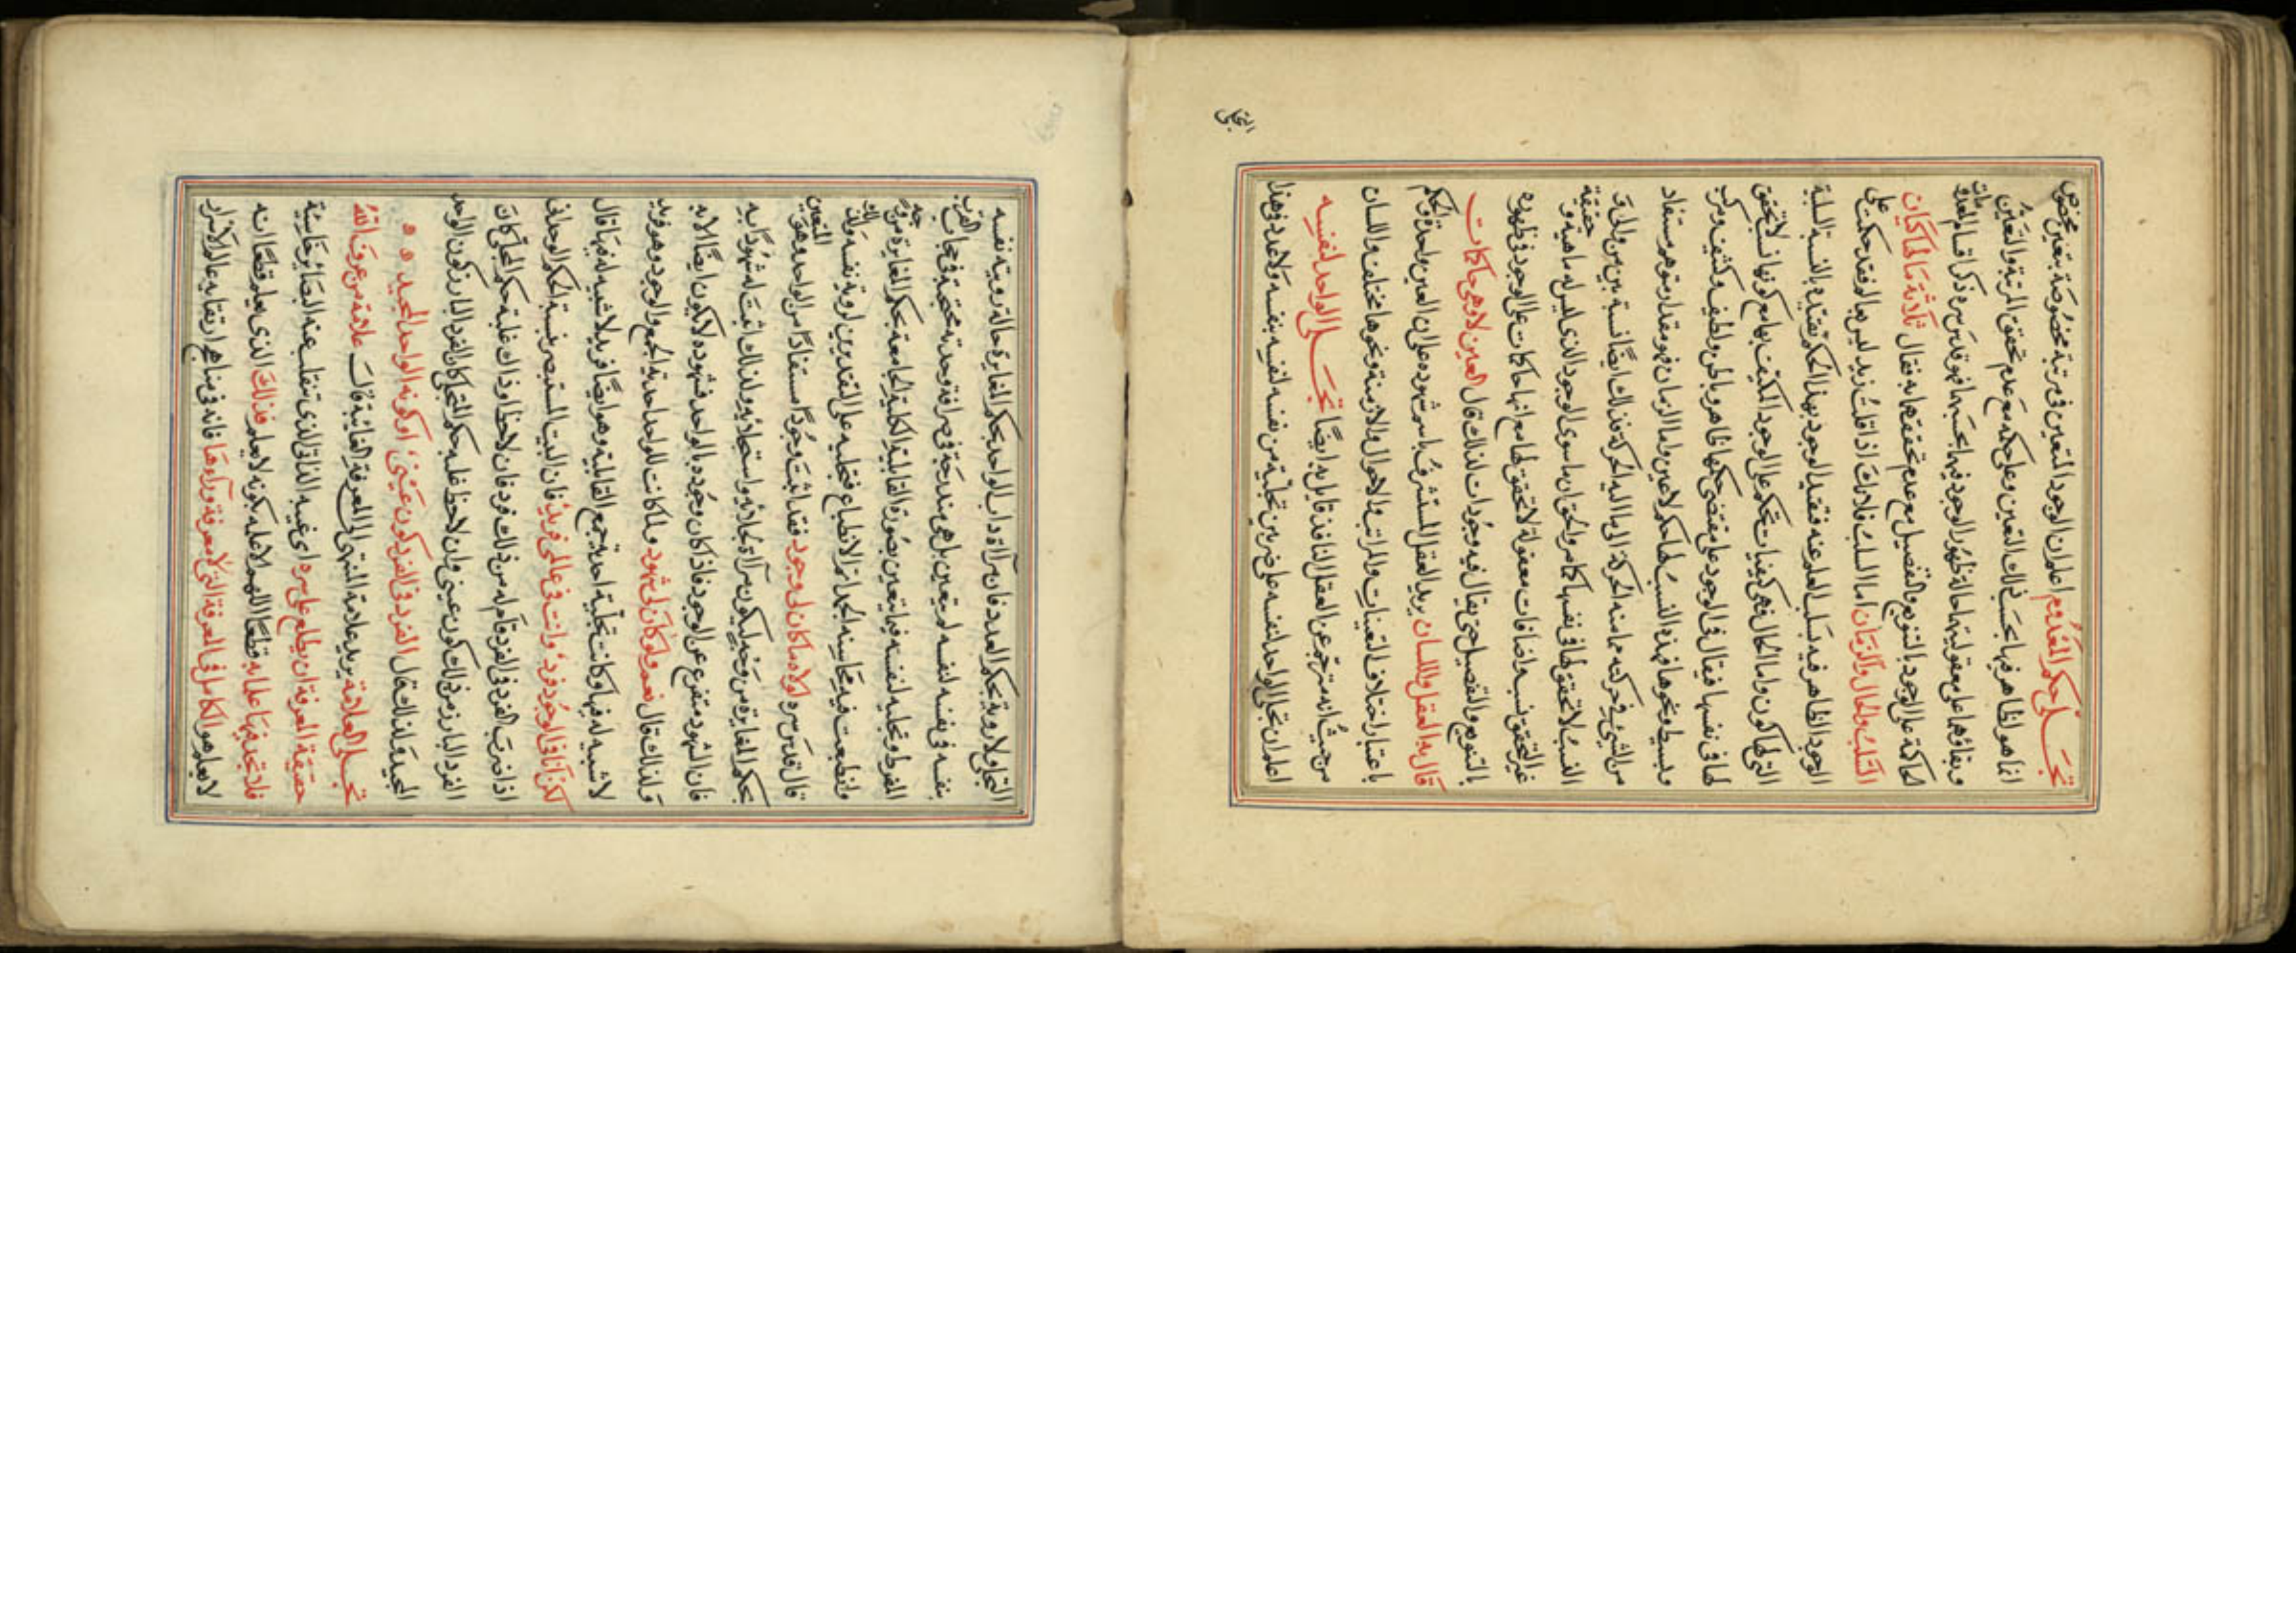 تجلى حكم المعدوم اعلم ان الوجود المتعين في مرتبة مخصوصة بتعين مخصوص
انما هو الظاهر فيها بحسب ذلك التعين وعلى حكمه مع عدم تحقق المرتبة والتعين
وبقاؤهما على معقوليتهما حالة ظهور الوجود فيها بحسبهما فهو قدس سره ذكر اقسام المعدومات
الحاكمة على الوجود بالتنويع والتفصيل مع عدم تحققها به فقال ثلاثة ما لها كيان
السلب والحال والزمان اما السلب فلانك اذا قلت زيد ليس بعالم فقد حكمت على
الوجود الظاهر فيه بسلب العلم عنه فتقيد الوجود بهذا الحكم تقيده بالنسبة السلبية
التي لها كون واما الحال فهي كيفيات تحكم على الوجود المكيف بها مع كونها نسب لا تحقق
لها في نفسها فيقال في الوجود على مقتضى حكمها ظاهر وباطن ولطيف وكثيف ومركب
وبسيط ونحوها فهذه النسب لها حكم لا عين واما الزمان فهو مقدار متوهم مستفاد
من الشيء في حركته مما منه الحركة الى ما اليه الحركة فذلك ايضا نسبة بين من والى
النسب لا تحقق لها في نفسها كما مر والحق ان ما سوى الوجود الذي ليس له ماهية وحقيقة
غير التحقق نسب واضافات معقولة لا تحقق لها مع انها حاكمات على الوجود في ظهوره
بالتنويع والتفصيل حتى يقال فيه وجودات لذلك قال العين لا وهي حاكمات
قال به العقل واللسان يريد العقل المستشرف باسر شهوده على ان العين واحدة والحكم
باعتبار اختلاف التعينات والمراتب والاحوال والازمنة ونحوها مختلف واللسان
من حيث انه مترجم عن العقل النافذ قايل به ايضا تجلى الواحد لنفسه
اعلم ان تجلى الواحد لنفسه على ضربين تجليه من نفسه لنفسه بنفسه ولا عدد في هذا
التجلى
التجلى ولا رؤية بحكم العدد فان مرآة ذات الواحد بحكم المغايرة حالة رؤيته نفسه
بنفسه في نفسه لنفسه لم يتعين بل هي مندرجة في صرافة وحدته محتجبة في حجاب القرب
المفرط وتجليه لنفسه فيما يتعين بصورة القابلية الكلية الجامعة بحكم المغايرة من وجه
وانطبعت فيه محاسنه الجمة اتم الانطباع فتجليه على التقديرين لرؤية نفسه وذلك
قال قدس سره لولاه ما كان لى وجود فقد اثبت وجودا مستفادا من الواحد وهو المتعين
بحكم المغايرة من وجه ليكون مرآة تجلائه واستجلائه ولذلك اثبت له شهودا به
فان الشهود متفرع عن الوجود فاذا كان وجوده بالواحد فشهوده لا يكون ايضا الا به
ولذلك قال نعم ولو كان لى شهود ولما كانت للواحد احدية الجمع والوجود وهو فريد
لا شبيه له فيها وكانت تجلية احدية جمع القابلية وهو ايضا فريد لا شبيه له فيها قال
لكن انا في الوجود فرد وانت في عالمي فريد فان البيت المستبصر فنسبة الحكم الوحداني
اذا ضربت الفرد في الفرد قام له من ذلك فرد فان لاحظ اذ ذاك غلبة حكم المجلى كان
الفرد البارز من ذلك كون عيني وان لاحظ غلبة حكم المتجلى كان الفرد البارز كون الواحد
المجيد ولذلك قال الفرد في الفرد كون عيني او كونه الواحد المجيد
تجلى العلامة يريد علامة المنتهى الى المعرفة الغائية قال علامة من عرف الله
حقيقة المعرفة ان يطلع على سره اى غيبه الذاتى الذى تنقلب عنه البصائر خاسئة
فلا تجد فيها علما به قطعا اللهم الا علمه بكونه لا يعلم فذلك الذى يعلم قطعا انه
لا يعلم هو الكامل في المعرفة التى لا معرفة وراءها فانه في مناهج ارتقائه عالم الاسرار